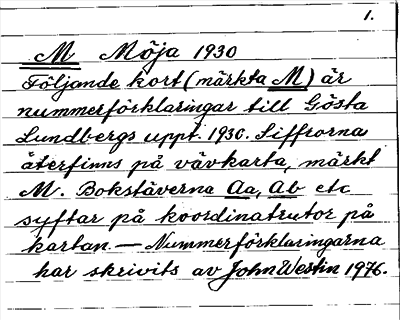 1.
M Möja 1930
Följande kort (märkta M) är
nummerförklaringar till Gösta
Lundbergs uppt. 1930. Siffrorna
återfinns på vävkarta, märkt
M. Bokstäverna Aa, Ab etc
syftar på koordinatrutor på
kartan — Nummerförklaringarna
har skrivits av John Westin 1976.